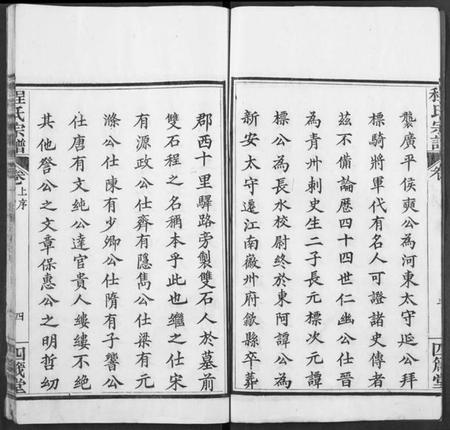 襲廣平侯奭公為河東太守延公拜
驃騎將軍代有名人可證諸史傳者
茲不備論歷四十四世仁幽公仕晉
為青州刺史生二子長元標次元譚
標公為長水校尉終於東阿譚公為
新安太守邊江南徽州府歙縣卒葬
程氏宗譜
卷
四箴堂
郡西十里驛路旁製雙石人於墓前
雙石程之名稱本乎此也繼之仕宋
有源政公仕齊有隱雋公仕梁有元
滌公仕陳有少卿公仕隋有子響公
仕唐有文純公達官貴人縷縷不絕
其他譽公之文章保惠公之明哲幼
程氏宗譜
卷
上序
四
四箴堂